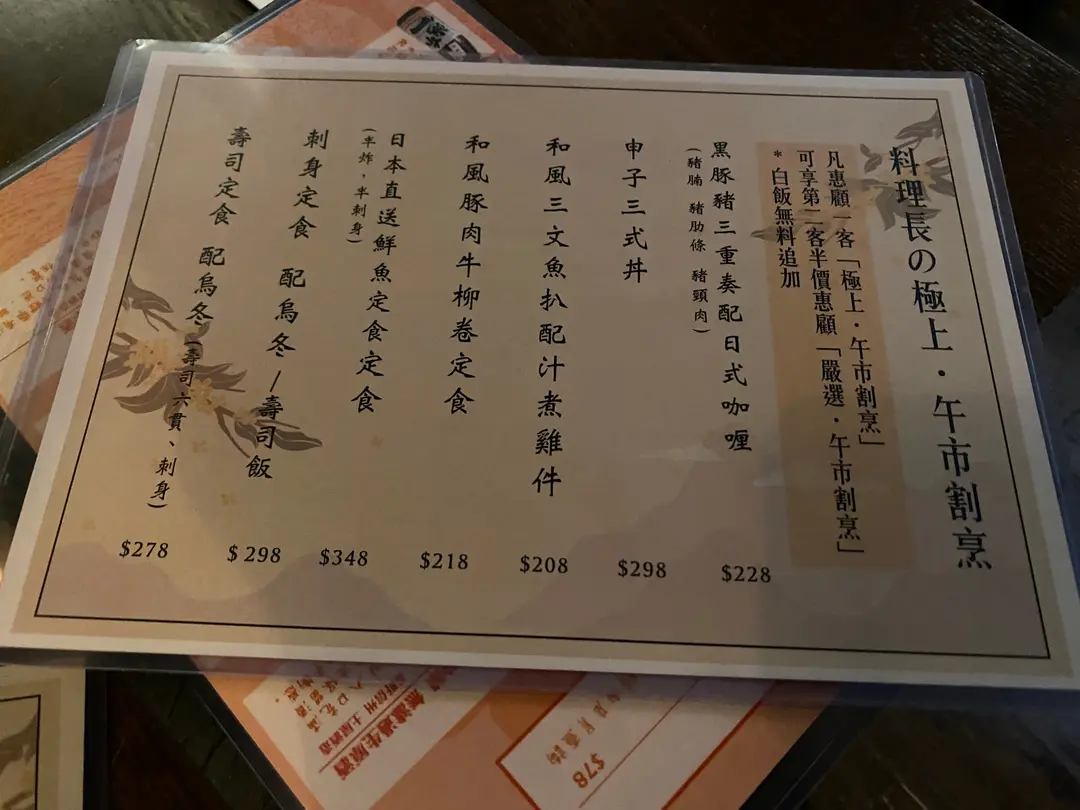 料理長の極上・午市割烹
凡惠顧一客「極上・午市割烹」
可享第二客半價惠顧「嚴選・午市割烹」
* 白飯無料追加
黑豚豬三重奏配日式咖喱
(豬腩 豬肋條 豬頸肉)
$228
申子三式丼
$298
和風三文魚扒配汁煮雞件
$208
和風豚肉牛柳卷定食
$218
日本直送鮮魚定食定食
(半炸，半刺身)
$348
刺身定食 配烏冬/壽司飯
$298
壽司定食 配烏冬(壽司六貫、刺身)
$278
$78